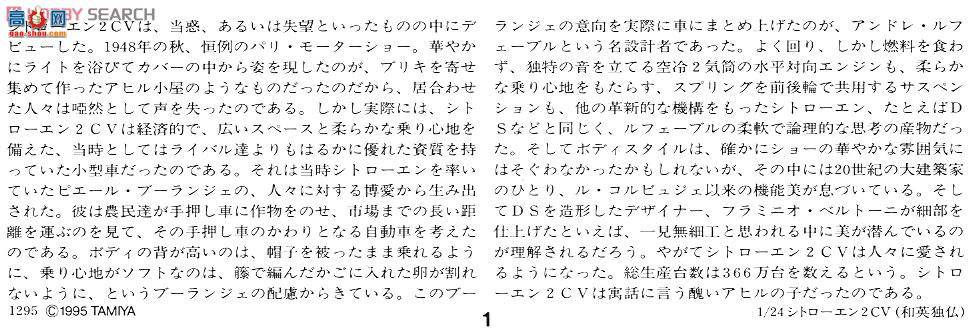 HOBBY SEARCH
gao shou
.com
シトローエン２ＣＶは、当惑、あるいは失望といったものの中にデ
ビューした。1948年の秋、恒例のパリ・モーターショー。華やか
にライトを浴びてカバーの中から姿を現したのが、ブリキを寄せ
集めて作ったアヒル小屋のようなものだったのだから、居合わせ
た人々は啞然として声を失ったのである。しかし実際には、シト
ローエン２ＣＶは経済的で、広いスペースと柔らかな乗り心地を
備えた、当時としてはライバル達よりもはるかに優れた資質を持
っていた小型車だったのである。それは当時シトローエンを率い
ていたピエール・ブーランジェの、人々に対する博愛から生み出
された。彼は農民達が手押し車に作物をのせ、市場までの長い距
離を運ぶのを見て、その手押し車のかわりとなる自動車を考えた
のである。ボディの背が高いのは、帽子を被ったまま乗れるよう
に、乗り心地がソフトなのは、籐で編んだかごに入れた卵が割れ
ないように、というブーランジェの配慮からきている。このブー
ランジェの意向を実際に車にまとめ上げたのが、アンドレ・ルフ
ェーブルという名設計者であった。よく回り、しかし燃料を食わ
ず、独特の音を立てる空冷２気筒の水平対向エンジンも、柔らか
な乗り心地をもたらす、スプリングを前後輪で共用するサスペン
ションも、他の革新的な機構をもったシトローエン、たとえばＤ
Ｓなどと同じく、ルフェーブルの柔軟で論理的な思考の産物だっ
た。そしてボディスタイルは、確かにショーの華やかな雰囲気に
はそぐわなかったかもしれないが、その中には20世紀の大建築家
のひとり、ル・コルビュジェ以来の機能美が息づいている。そし
てＤＳを造形したデザイナー、フラミニオ・ベルトーニが細部を
仕上げたといえば、一見無細工と思われる中に美が潜んでいるの
が理解されるだろう。やがてシトローエン２ＣＶは人々に愛され
るようになった。総生産台数は３６６万台を数えるという。シトロ
ーエン２ＣＶは寓話に言う醜いアヒルの子だったのである。
1295 ©1995 TAMIYA
1
1/24 シトローエン２CV (和英独仏)